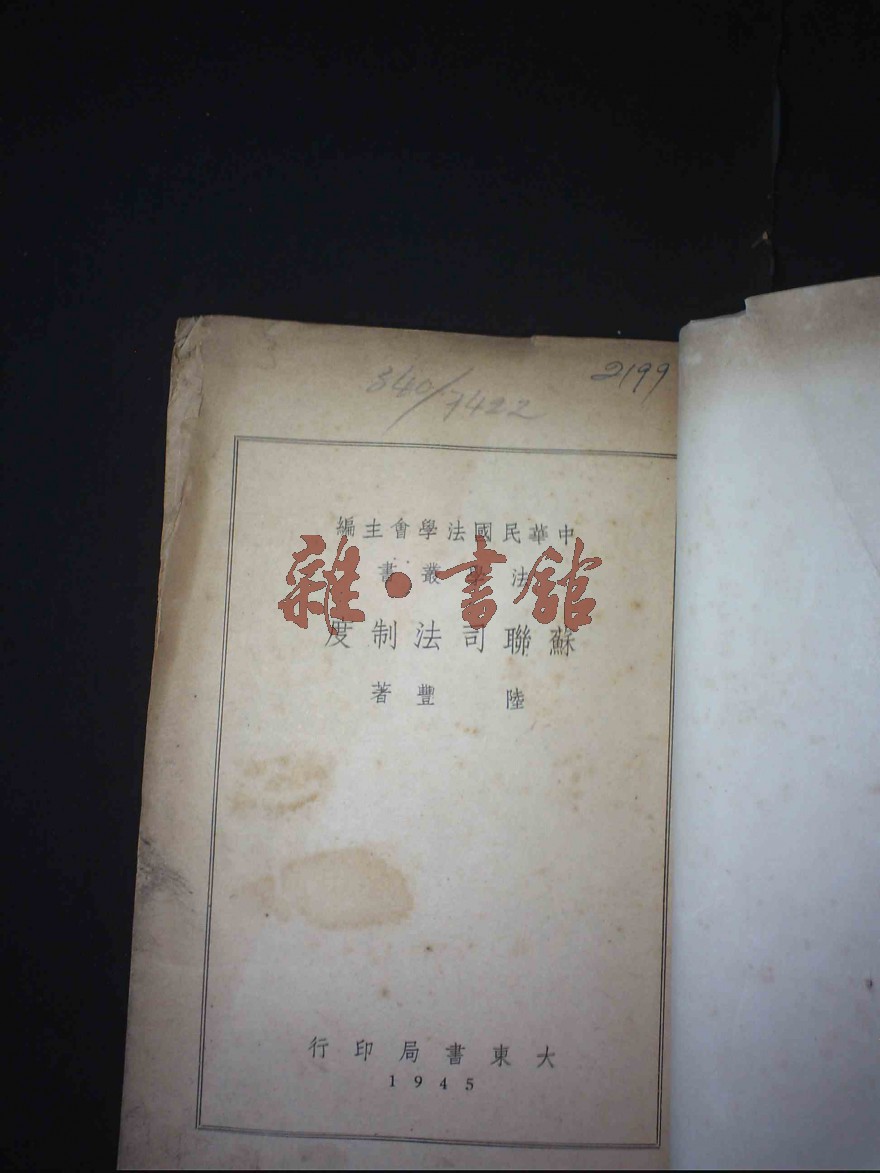 340/7422
2199
中華民國法學會主編
法學叢書
雜·書館
蘇聯司法制度
陸豐著
大東書局印行
1945